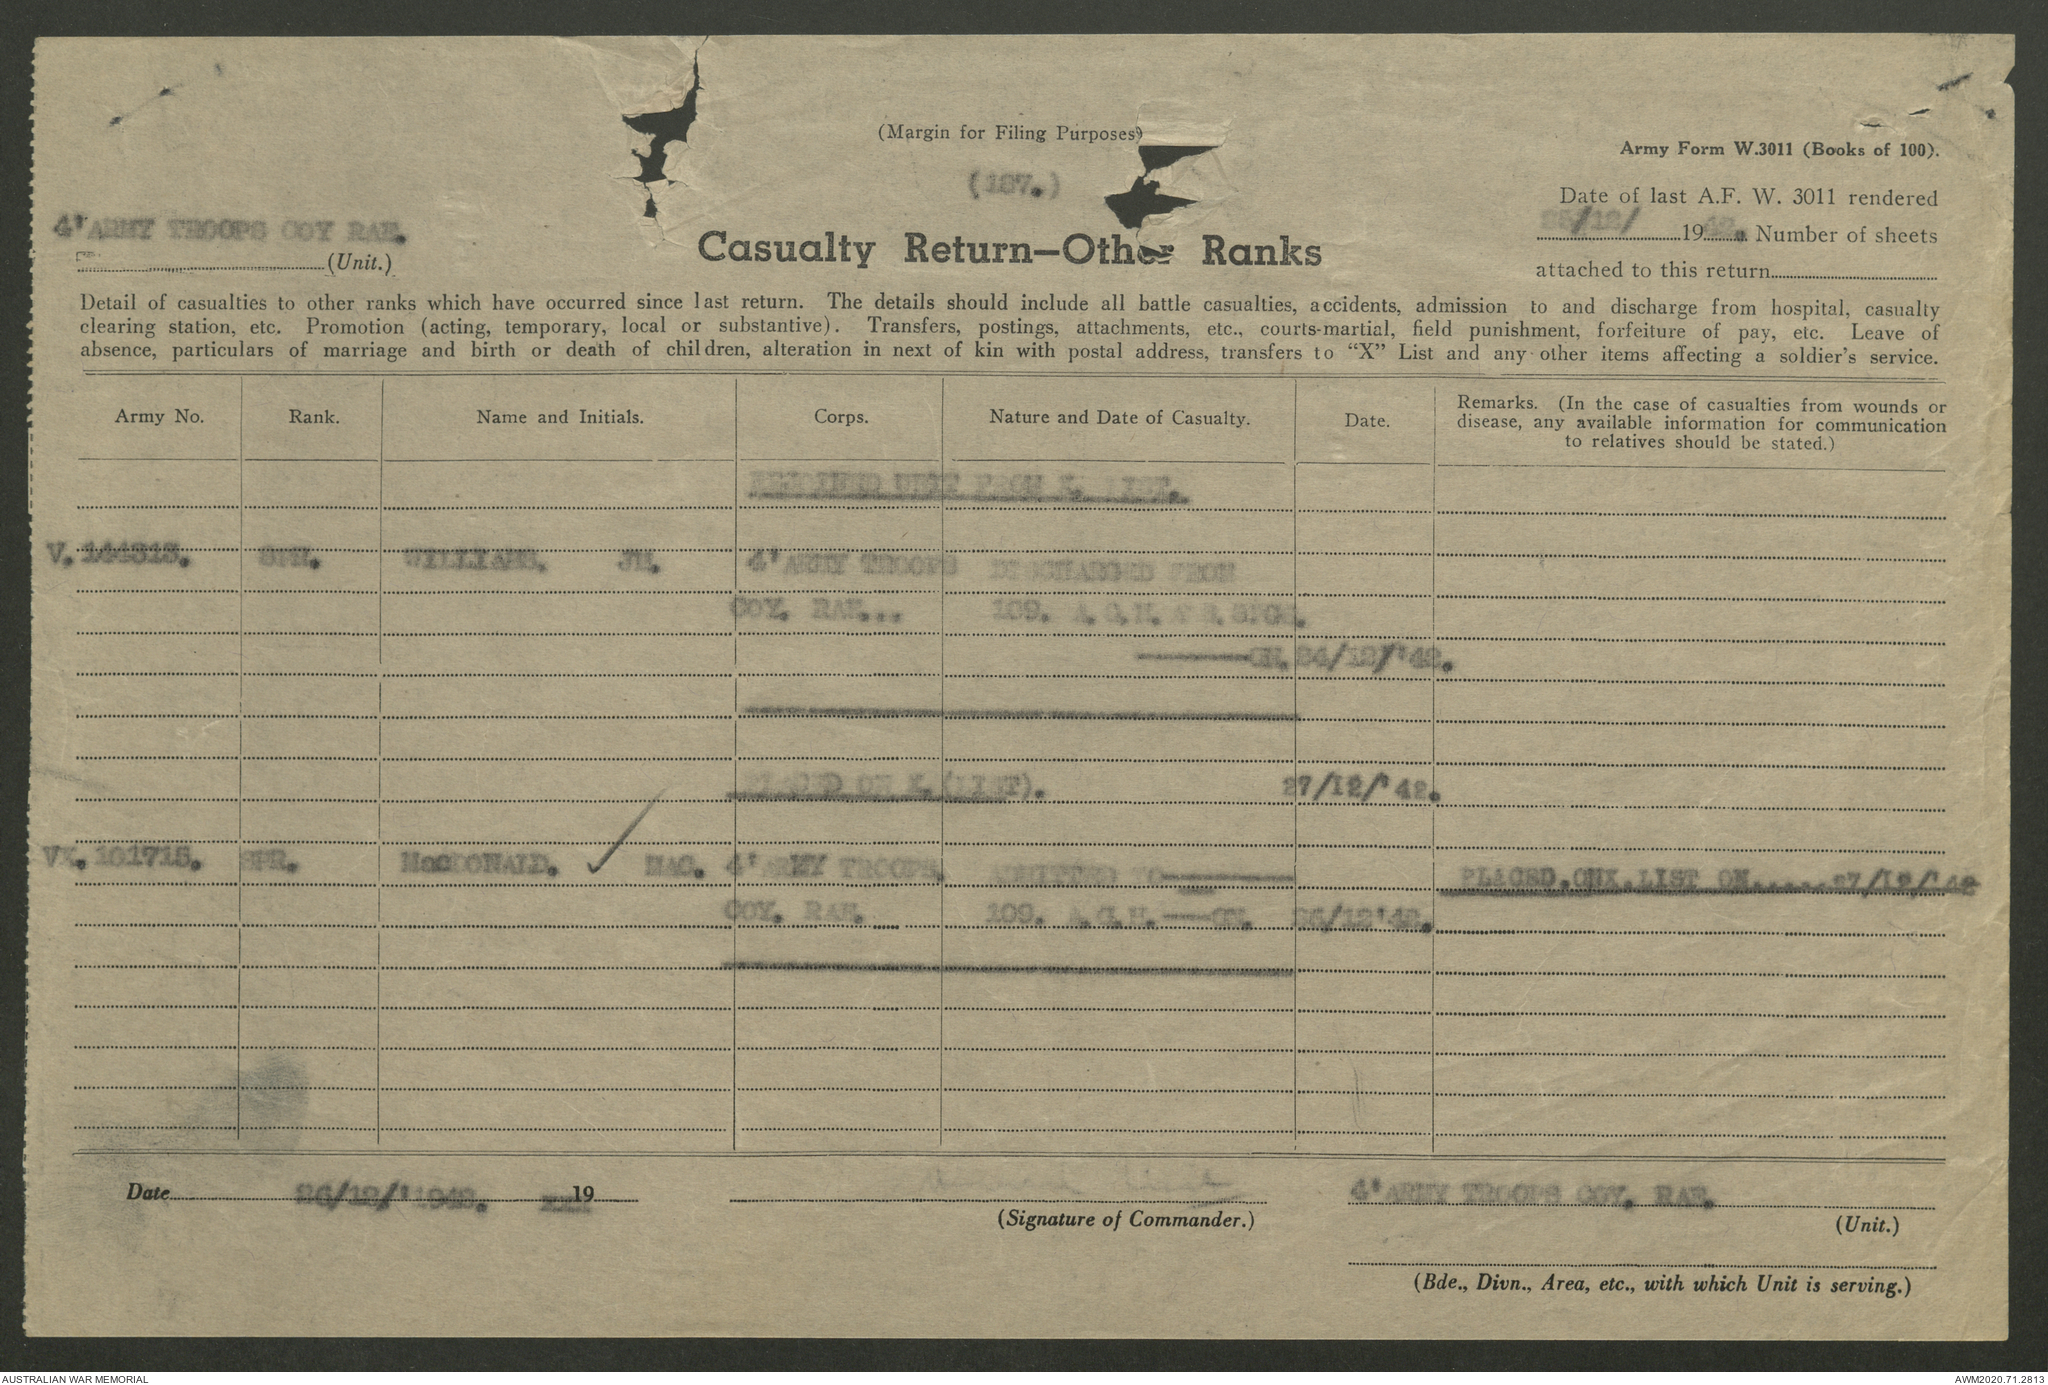 (Margin for Filing Purposes)
Army Form W.3011 (Books of 100).
(187.)
Date of last A.F. W. 3011 rendered
4'ARMY TROOPS COY RAE.
25/12/ 1942. Number of sheets
(Unit.)
Casualty Return—Other Ranks
attached to this return
Detail of casualties to other ranks which have occurred since last return. The details should include all battle casualties, accidents, admission to and discharge from hospital, casualty
clearing station, etc. Promotion (acting, temporary, local or substantive). Transfers, postings, attachments, etc., courts-martial, field punishment, forfeiture of pay, etc. Leave of
absence, particulars of marriage and birth or death of children, alteration in next of kin with postal address, transfers to "X" List and any other items affecting a soldier's service.
Army No. Rank. Name and Initials. Corps. Nature and Date of Casualty. Date. Remarks. (In the case of casualties from wounds or
disease, any available information for communication
to relatives should be stated.)
REJOINED UNIT FROM X. LIST.
V.144313. SPR. WILLIAMS. JH. 4'ARMY TROOPS DISCHARGED FROM
COY. RAE... 109. A.G.H.
ON. 24/12/'42.
PLACED ON X.(LIST). 27/12/'42.
VX.101715. SPR. MacDONALD. MAC. 4'ARMY TROOPS. ADMITTED TO
PLACED.ONX.LIST ON.....27/12/'42
COY. RAE. 109. A.G.H.---ON. 26/12'42.
Date 26/12/'1942. 19
4'ARMY TROOPS COY. RAE.
(Signature of Commander.)
(Unit.)
(Bde., Divn., Area, etc., with which Unit is serving.)
AUSTRALIAN WAR MEMORIAL
AWM2020.71.2813